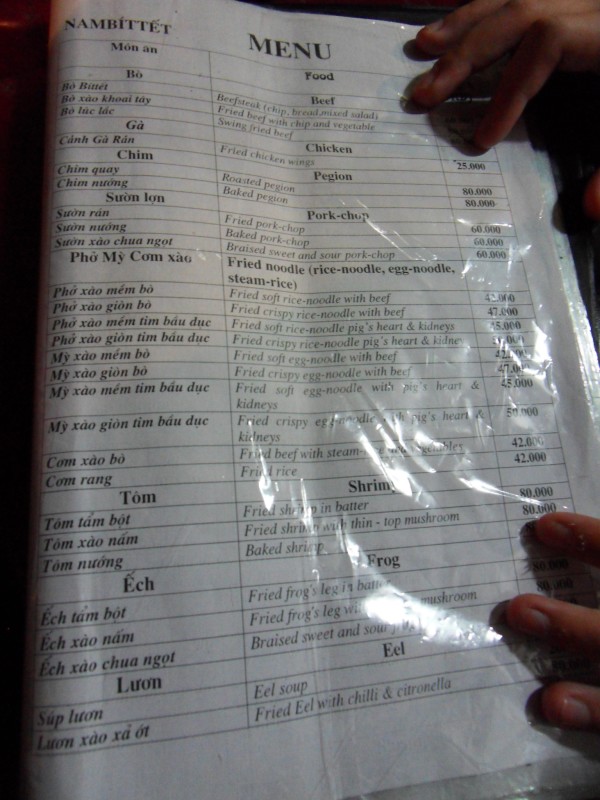 NAMBÍTTẾT
MENU
Món ăn Food
Bò Beef
Bò Bittêt Beefsteak (chip, bread,mixed salad)
Bò xào khoai tây Fried beef with chip and vegetable
Bò lúc lắc Swing fried beef
Gà Chicken
Cánh Gà Rán Fried chicken wings 25.000
Chim Pegion
Chim quay Roasted pegion 80.000
Chim nướng Baked pegion 80.000
Sườn lợn Pork-chop
Sườn rán Fried pork-chop 60.000
Sườn nướng Baked pork-chop 60.000
Sườn xào chua ngọt Braised sweet and sour pork-chop 60.000
Phở Mỳ Cơm xào Fried noodle (rice-noodle, egg-noodle,
steam-rice)
Phở xào mềm bò Fried soft rice-noodle with beef 42.000
Phở xào giòn bò Fried crispy rice-noodle with beef 47.000
Phở xào mềm tim bầu dục Fried soft rice-noodle pig's heart & kidneys 45.000
Phở xào giòn tim bầu dục Fried crispy rice-noodle pig's heart & kidney
Mỳ xào mềm bò Fried soft egg-noodle with beef
Mỳ xào giòn bò Fried crispy egg-noodle with beef 47.000
Mỳ xào mềm tim bầu dục Fried soft egg-noodle with pig's heart & 45.000
kidneys
Mỳ xào giòn tim bầu dục Fried crispy egg-noodle with pig's heart & 50.000
kidneys
Cơm xào bò Fried beef with steam-rice and vegetables 42.000
Cơm rang Fried rice 42.000
Tôm Shrimp
Tôm tẩm bột Fried shrimp in batter 80.000
Tôm xào nấm Fried shrimp with thin - top mushroom 80.000
Tôm nướng Baked shrimp
Ếch Frog
Ếch tẩm bột Fried frog's leg in batter 80.000
Ếch xào nấm Fried frog's leg mushroom 80.000
Ếch xào chua ngọt Braised sweet and sour
Lươn Eel
Súp lươn Eel soup
Lươn xào xả ớt Fried Eel with chilli & citronella